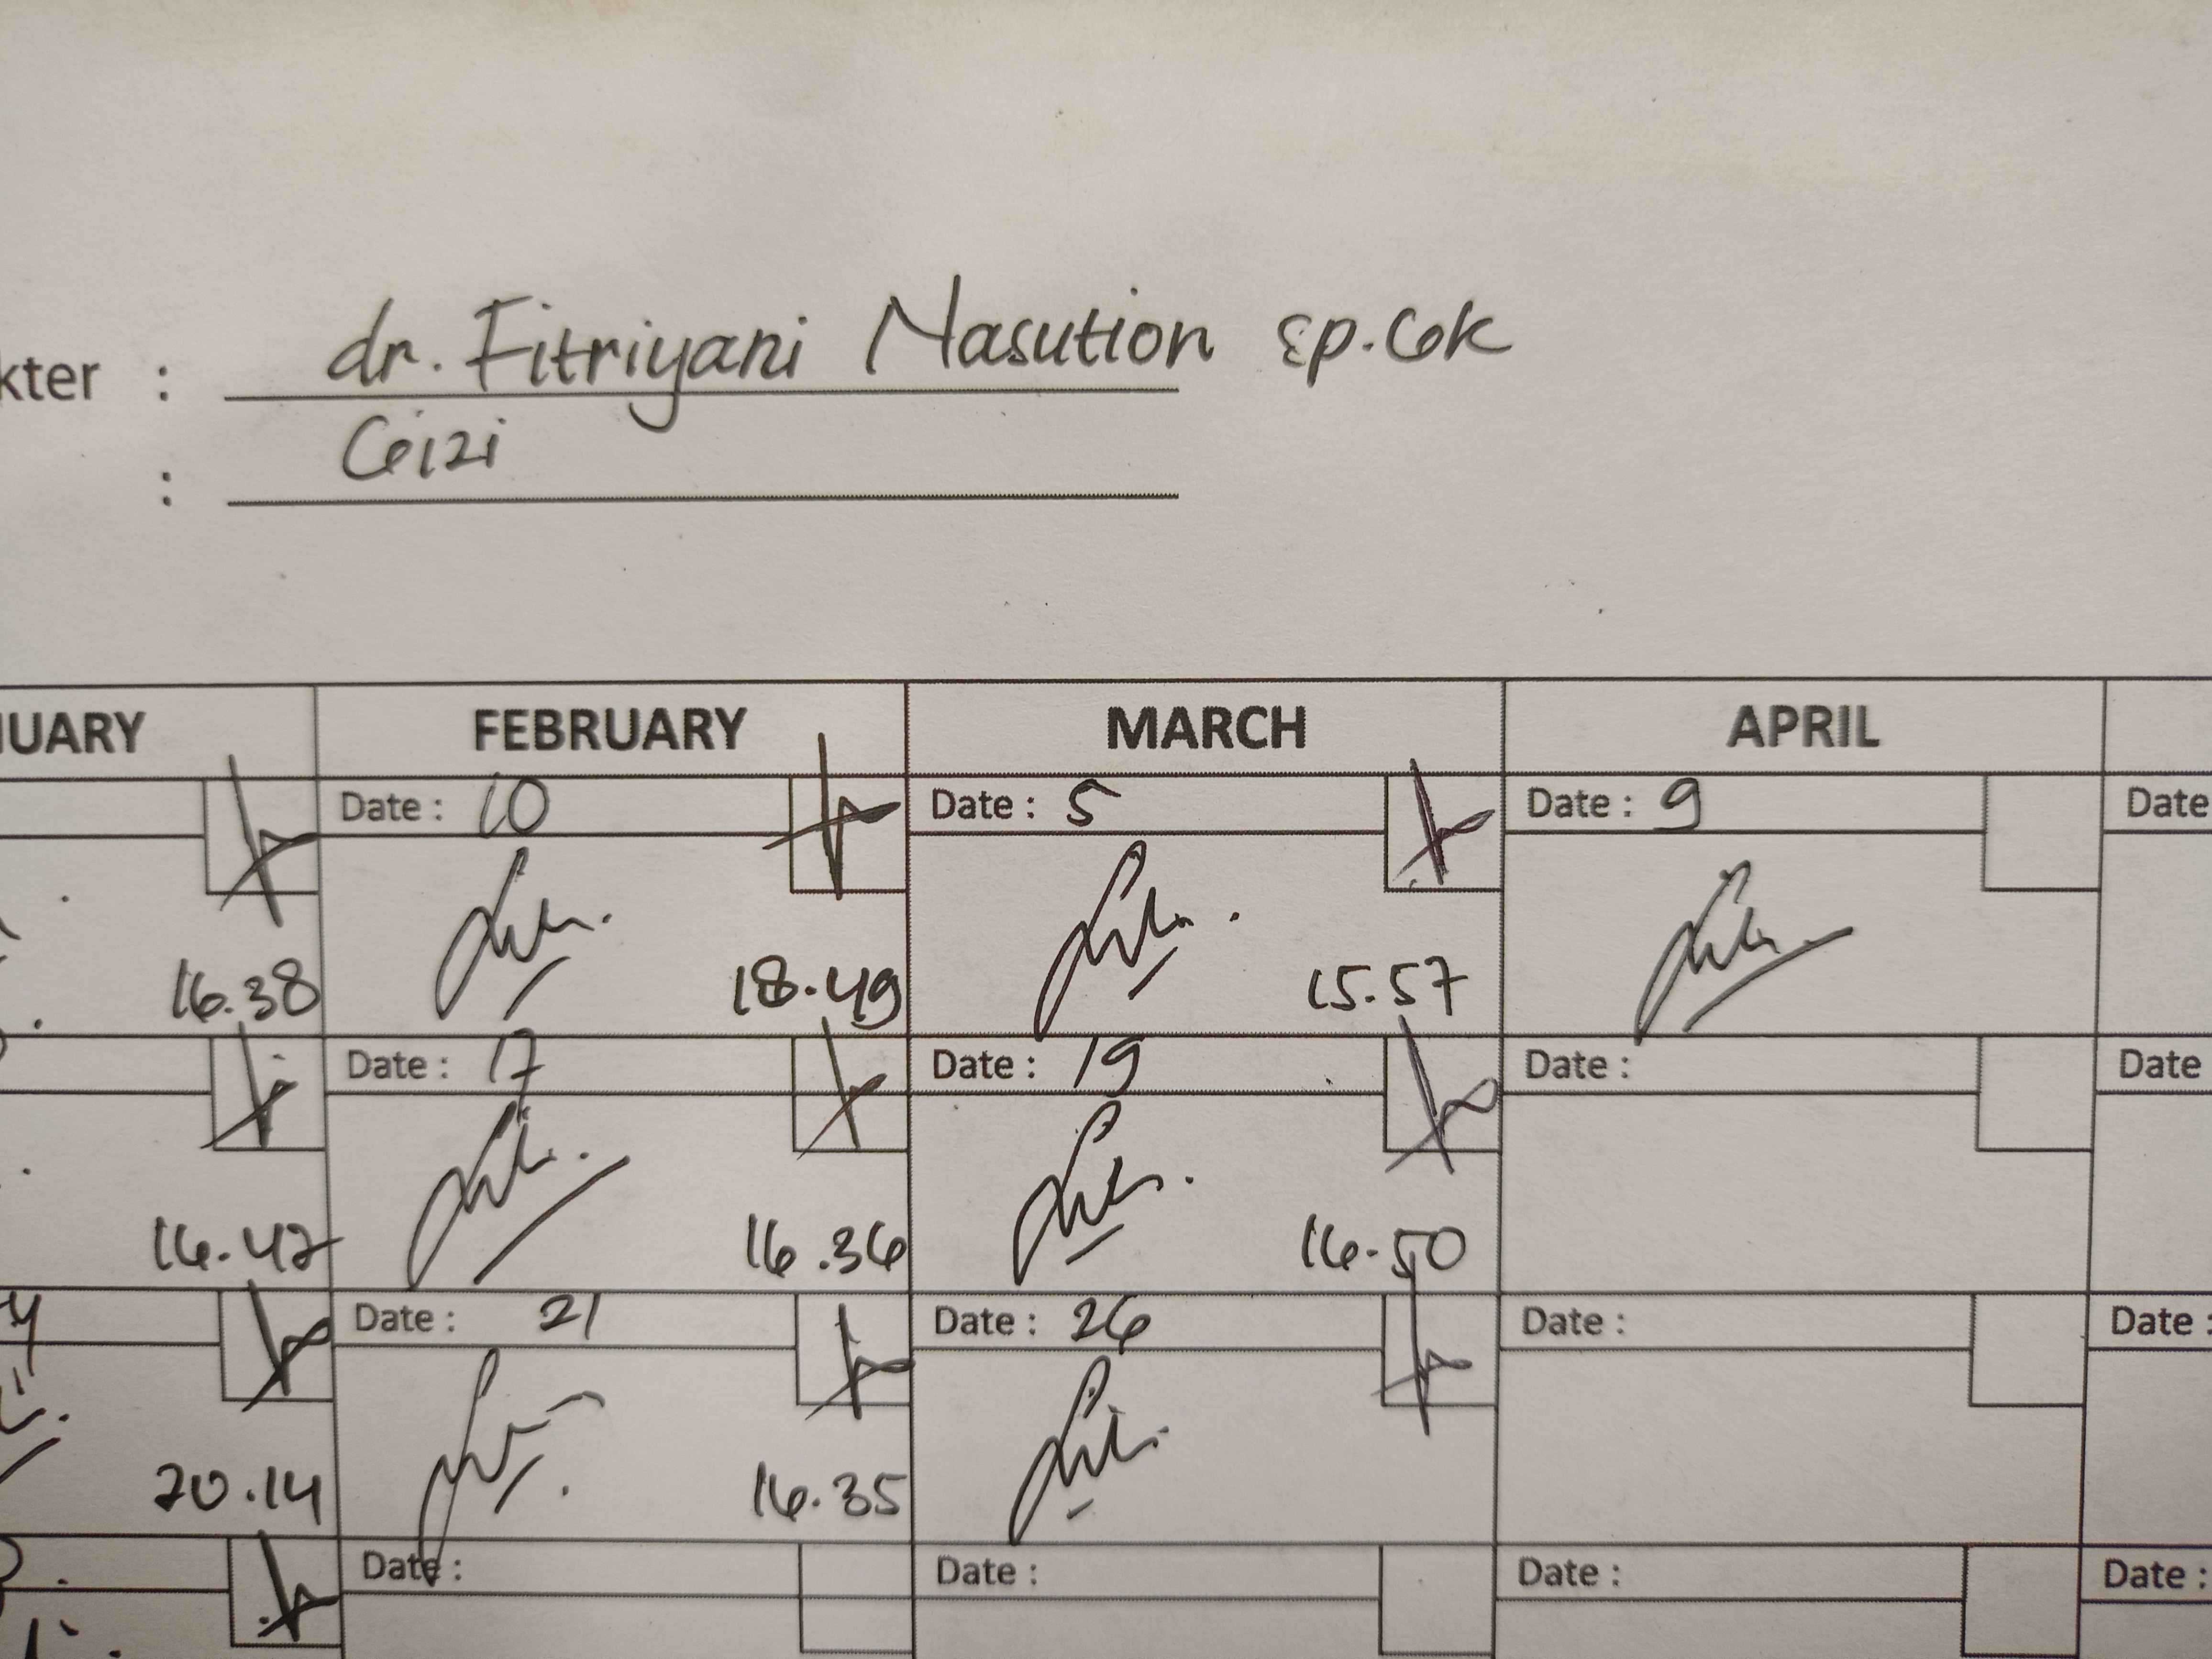 kter : dr. Fitriyani Nasution Sp.GK
: Gizi
UARY FEBRUARY MARCH APRIL
Date : 10 Date : 5 Date : 9 Date
16.38 18.49 15.57
Date : 17 Date : 19 Date : Date
16.47 16.36 16.50
Date : 21 Date : 26 Date : Date :
20.14 16.35
Date : Date : Date : Date :